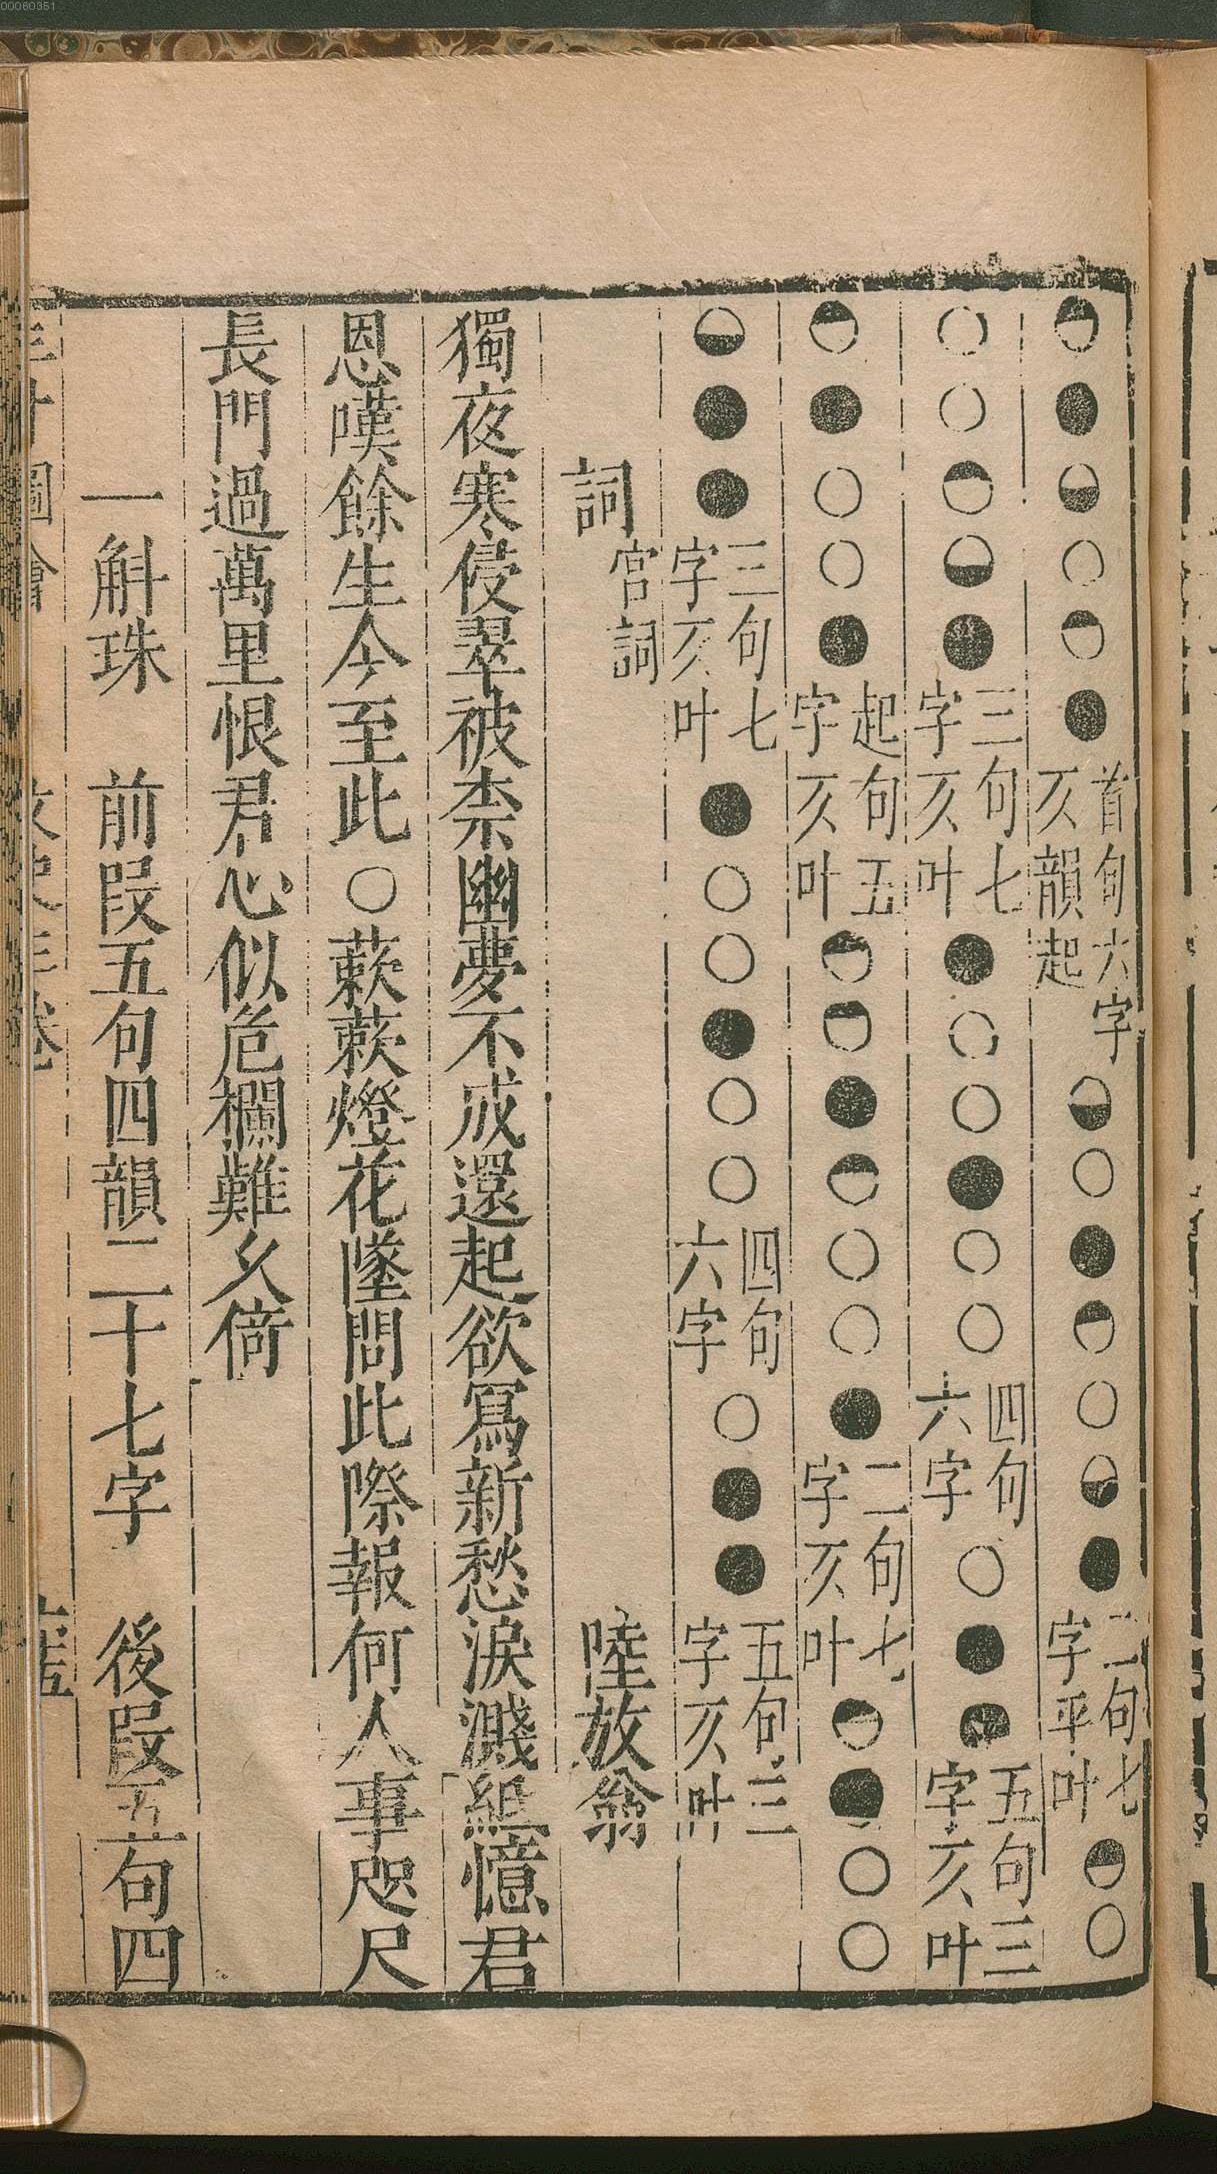 首句六字仄韻起 二句七字平叶
三句七字仄叶 四句六字 五句三字仄叶
起句五字仄叶 二句七字仄叶
三句七字仄叶 四句六字 五句三字仄叶
詞 宮詞 陸放翁
獨夜寒侵翠被柰幽夢不成還起欲寫新愁淚濺紙憶君
恩嘆餘生今至此○蔌蔌燈花墜問此際報何人事咫尺
長門過萬里恨君心似危欄難久倚
一斛珠 前段五句四韻二十七字 後段五句四
00060351